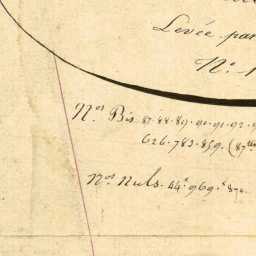 Levée par
N.o
N.os Bis. 87.88.89.90.91.92.
626.783.859. (87
N.os Nuls. 44. 969.